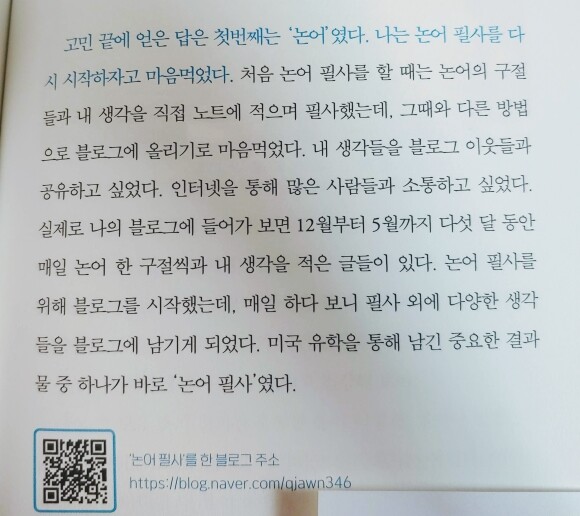 고민 끝에 얻은 답은 첫번째는 ‘논어’였다. 나는 논어 필사를 다
시 시작하자고 마음먹었다. 처음 논어 필사를 할 때는 논어의 구절
들과 내 생각을 직접 노트에 적으며 필사했는데, 그때와 다른 방법
으로 블로그에 올리기로 마음먹었다. 내 생각들을 블로그 이웃들과
공유하고 싶었다. 인터넷을 통해 많은 사람들과 소통하고 싶었다.
실제로 나의 블로그에 들어가 보면 12월부터 5월까지 다섯 달 동안
매일 논어 한 구절씩과 내 생각을 적은 글들이 있다. 논어 필사를
위해 블로그를 시작했는데, 매일 하다 보니 필사 외에 다양한 생각
들을 블로그에 남기게 되었다. 미국 유학을 통해 남긴 중요한 결과
물 중 하나가 바로 ‘논어 필사’였다.
‘논어 필사’를 한 블로그 주소
https://blog.naver.com/qjawn346